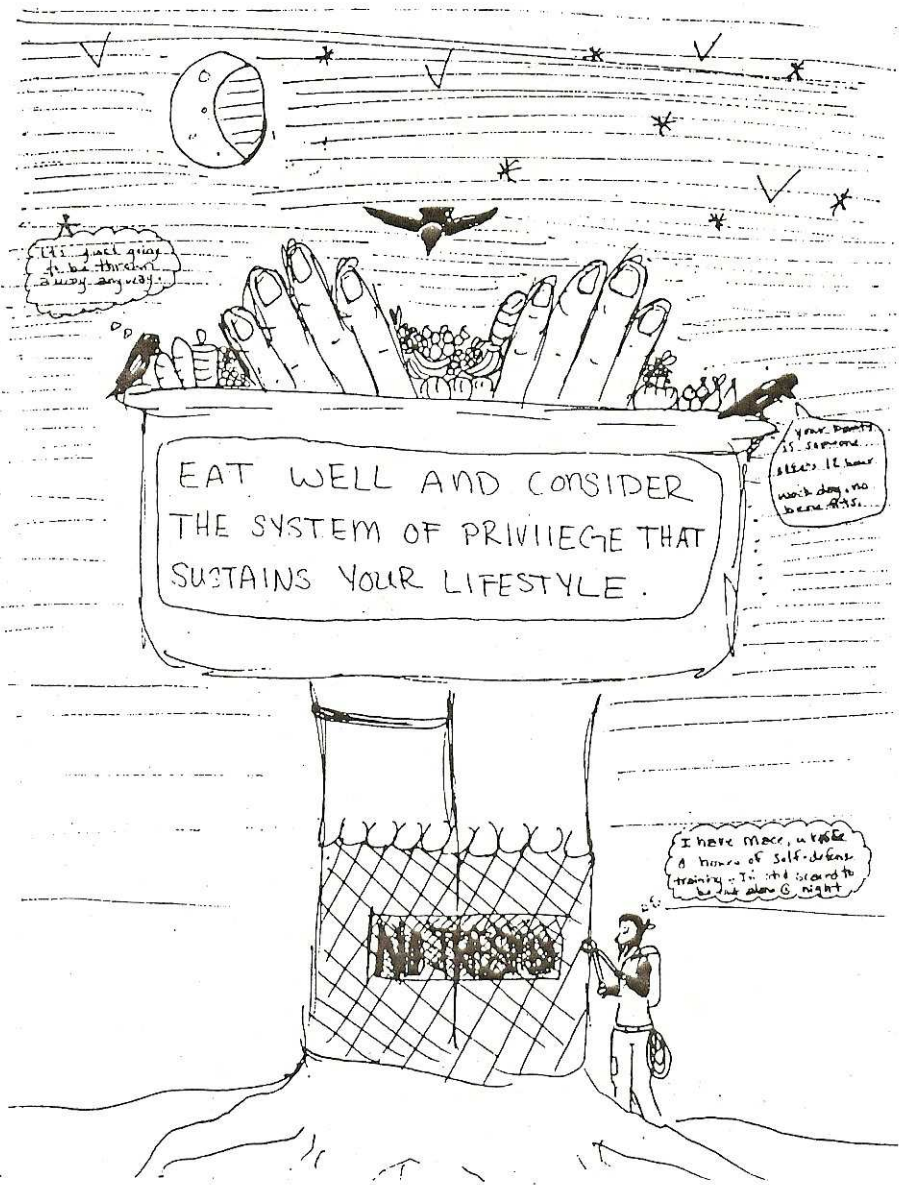 It's just going
to be thrown
away anyway.
EAT WELL AND CONSIDER
THE SYSTEM OF PRIVILEGE THAT
SUSTAINS YOUR LIFESTYLE.
your bounty
is someone
else's 12 hour
work day, no
benefits.
I have mace,
hours of self-defense
training - I'm still scared to
be out alone @ night
NO